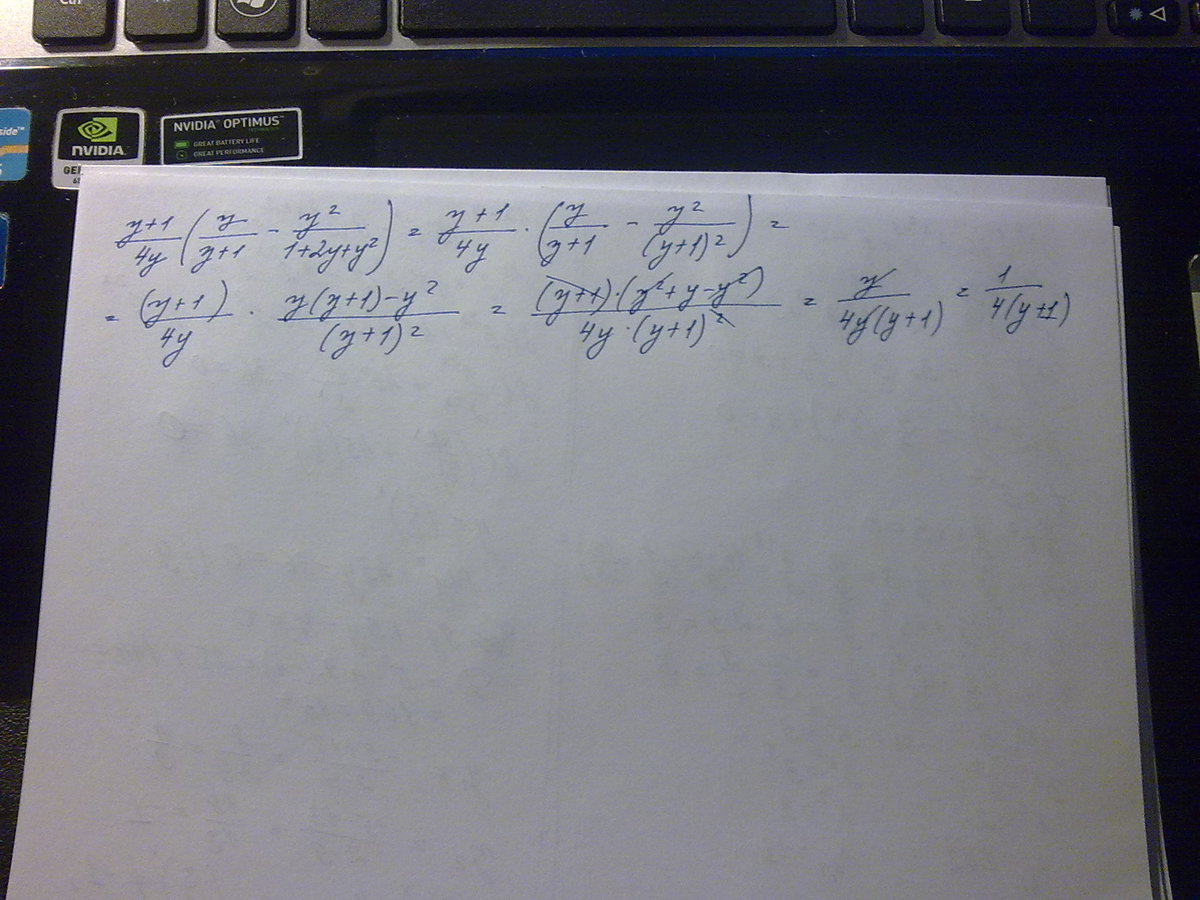 Ctrl
side™
NVIDIA
NVIDIA OPTIMUS™
GREAT BATTERY LIFE
GREAT PERFORMANCE
y+1/4y (y/y+1 - y²/1+2y+y²) = y+1/4y · (y/y+1 - y²/(y+1)²) =
= (y+1)/4y · y(y+1)-y²/(y+1)² = (y+1)·(y²+y-y²)/4y·(y+1)² = y/4y(y+1) = 1/4(y+1)